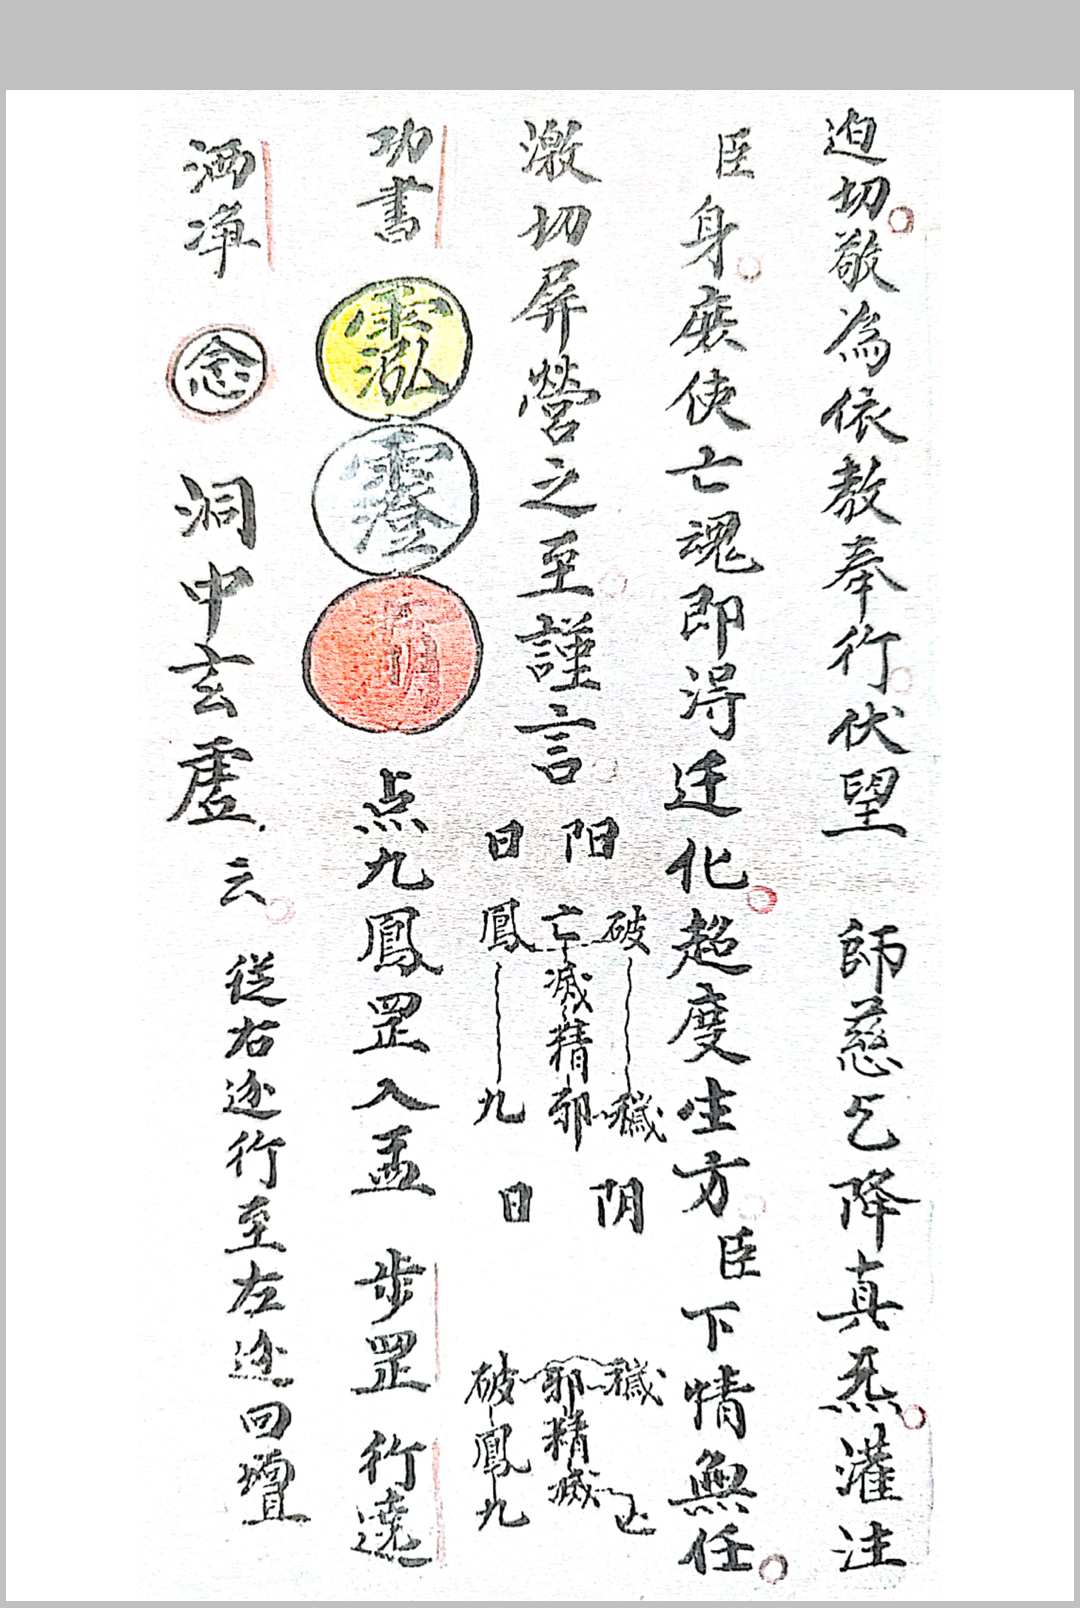 迫切敬為依教奉行伏望 師慈乞降真炁灌注
臣身庶使亡魂即得迁化超度生方臣下情無任
激切屏營之至謹言
阳日
破 亡 鳳
滅
精
穢 邪 九
阴日
穢 耶 破
精 鳳
滅 九
功書 點九鳳罡入盂 步罡 行遶
洒净 念 洞中玄虚 云 従右边行至左边回壇